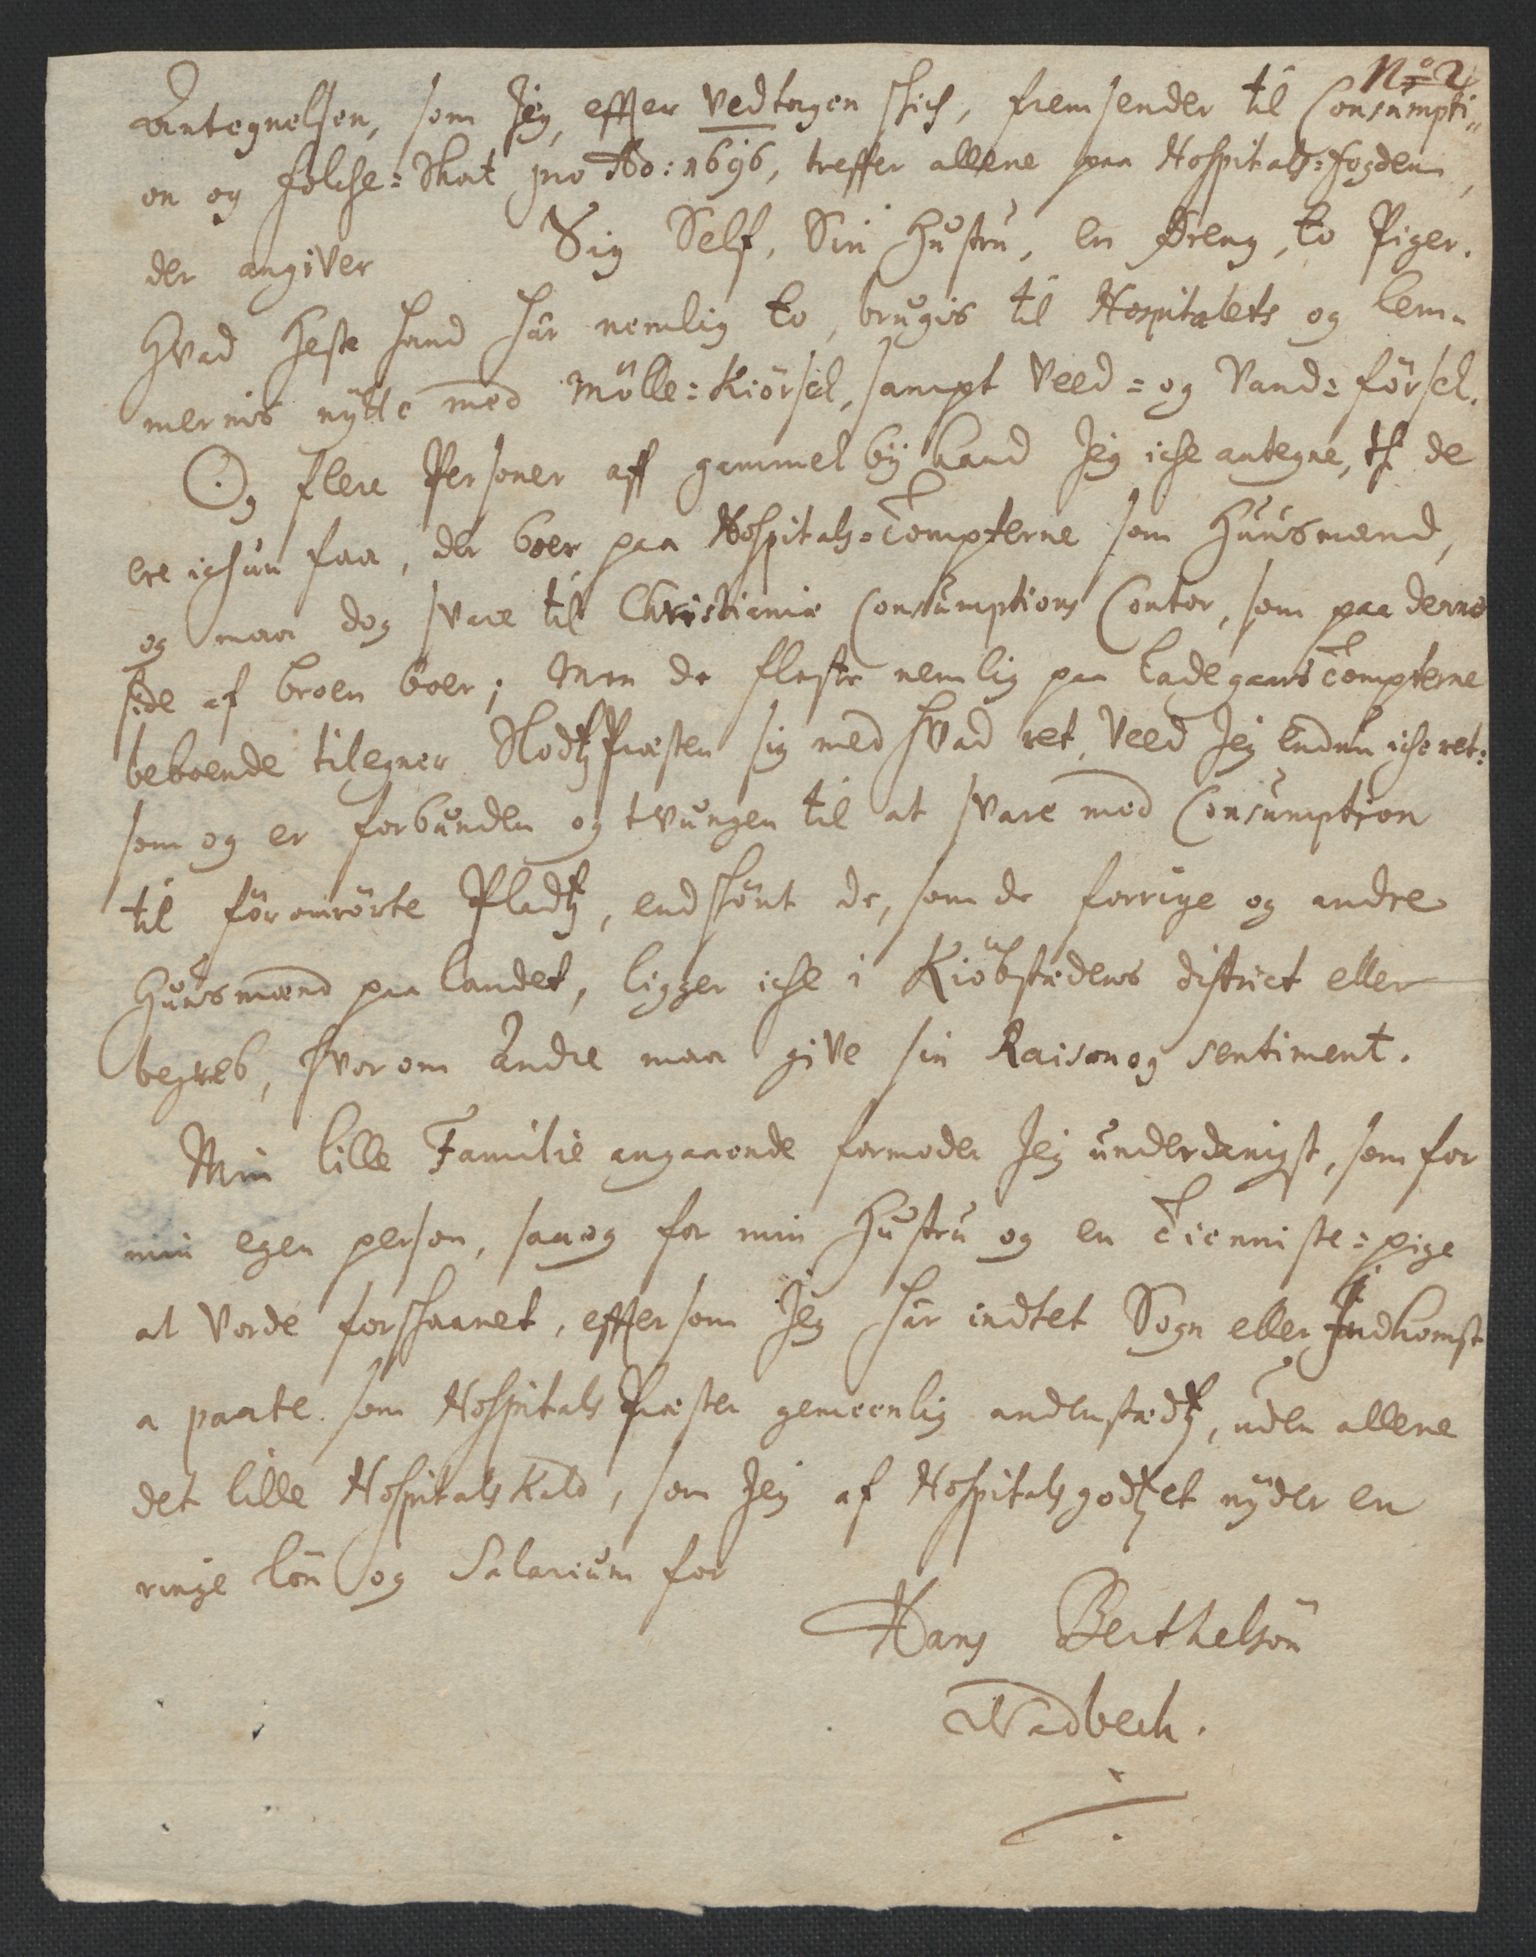 No 2
Antegnelsen, som Jeg, effter vedtagen skich, fremsender til Consumpti=
on og folche=Skat pro Ao: 1696, treffer allene paa Hospitals=fogden,
der angiver Sig Self, Sin Hustru, en Dreng, to Piger.
Hvad Heste hand har nemlig to, brugis til Hospitalets og Lem=
mernis nytte med Mölle=Kiörsel, sampt Veed= og Vand=försel.
Og flere Personer aff gammel bÿ kand Jeg iche antegne, thi de
ere ichun faa, der boer paa Hospitals=Tompterne som Huusmend,
og maa dog svare til Christianiæ Consumptions Contor, som paa denne
side af broen boer; Men de fleste nemlig paa Ladegaards Tompterne
beboende tilegner SlodtzPræsten sig med hvad ret, veed Jeg endnu iche ret:
som og er forbunden og tvungen til at svare med Consumption
til föromrörte Pladtz, endskönt de, som de forrige og andre
Huusmænd paa Landet, ligger iche i Kiöbstædens district eller
begreb, hvorom Andre maa give sin Raison og sentiment.
Min lille Familie angaaende formoder Jeg underdanigst, som for
min egen person, saa og for min Hustru og en Tienniste=pige
at vorde forskaanet, efftersom Jeg har indtet Sogn eller Indkomst
a parte som HospitalsPræster gemeenlig andenstædtz, uden allene
det lille HospitalsKald, som Jeg af Hospitalsgodtzet nyder en
ringe lön og Salarium for
Hans Berthelsön
Wadbech.